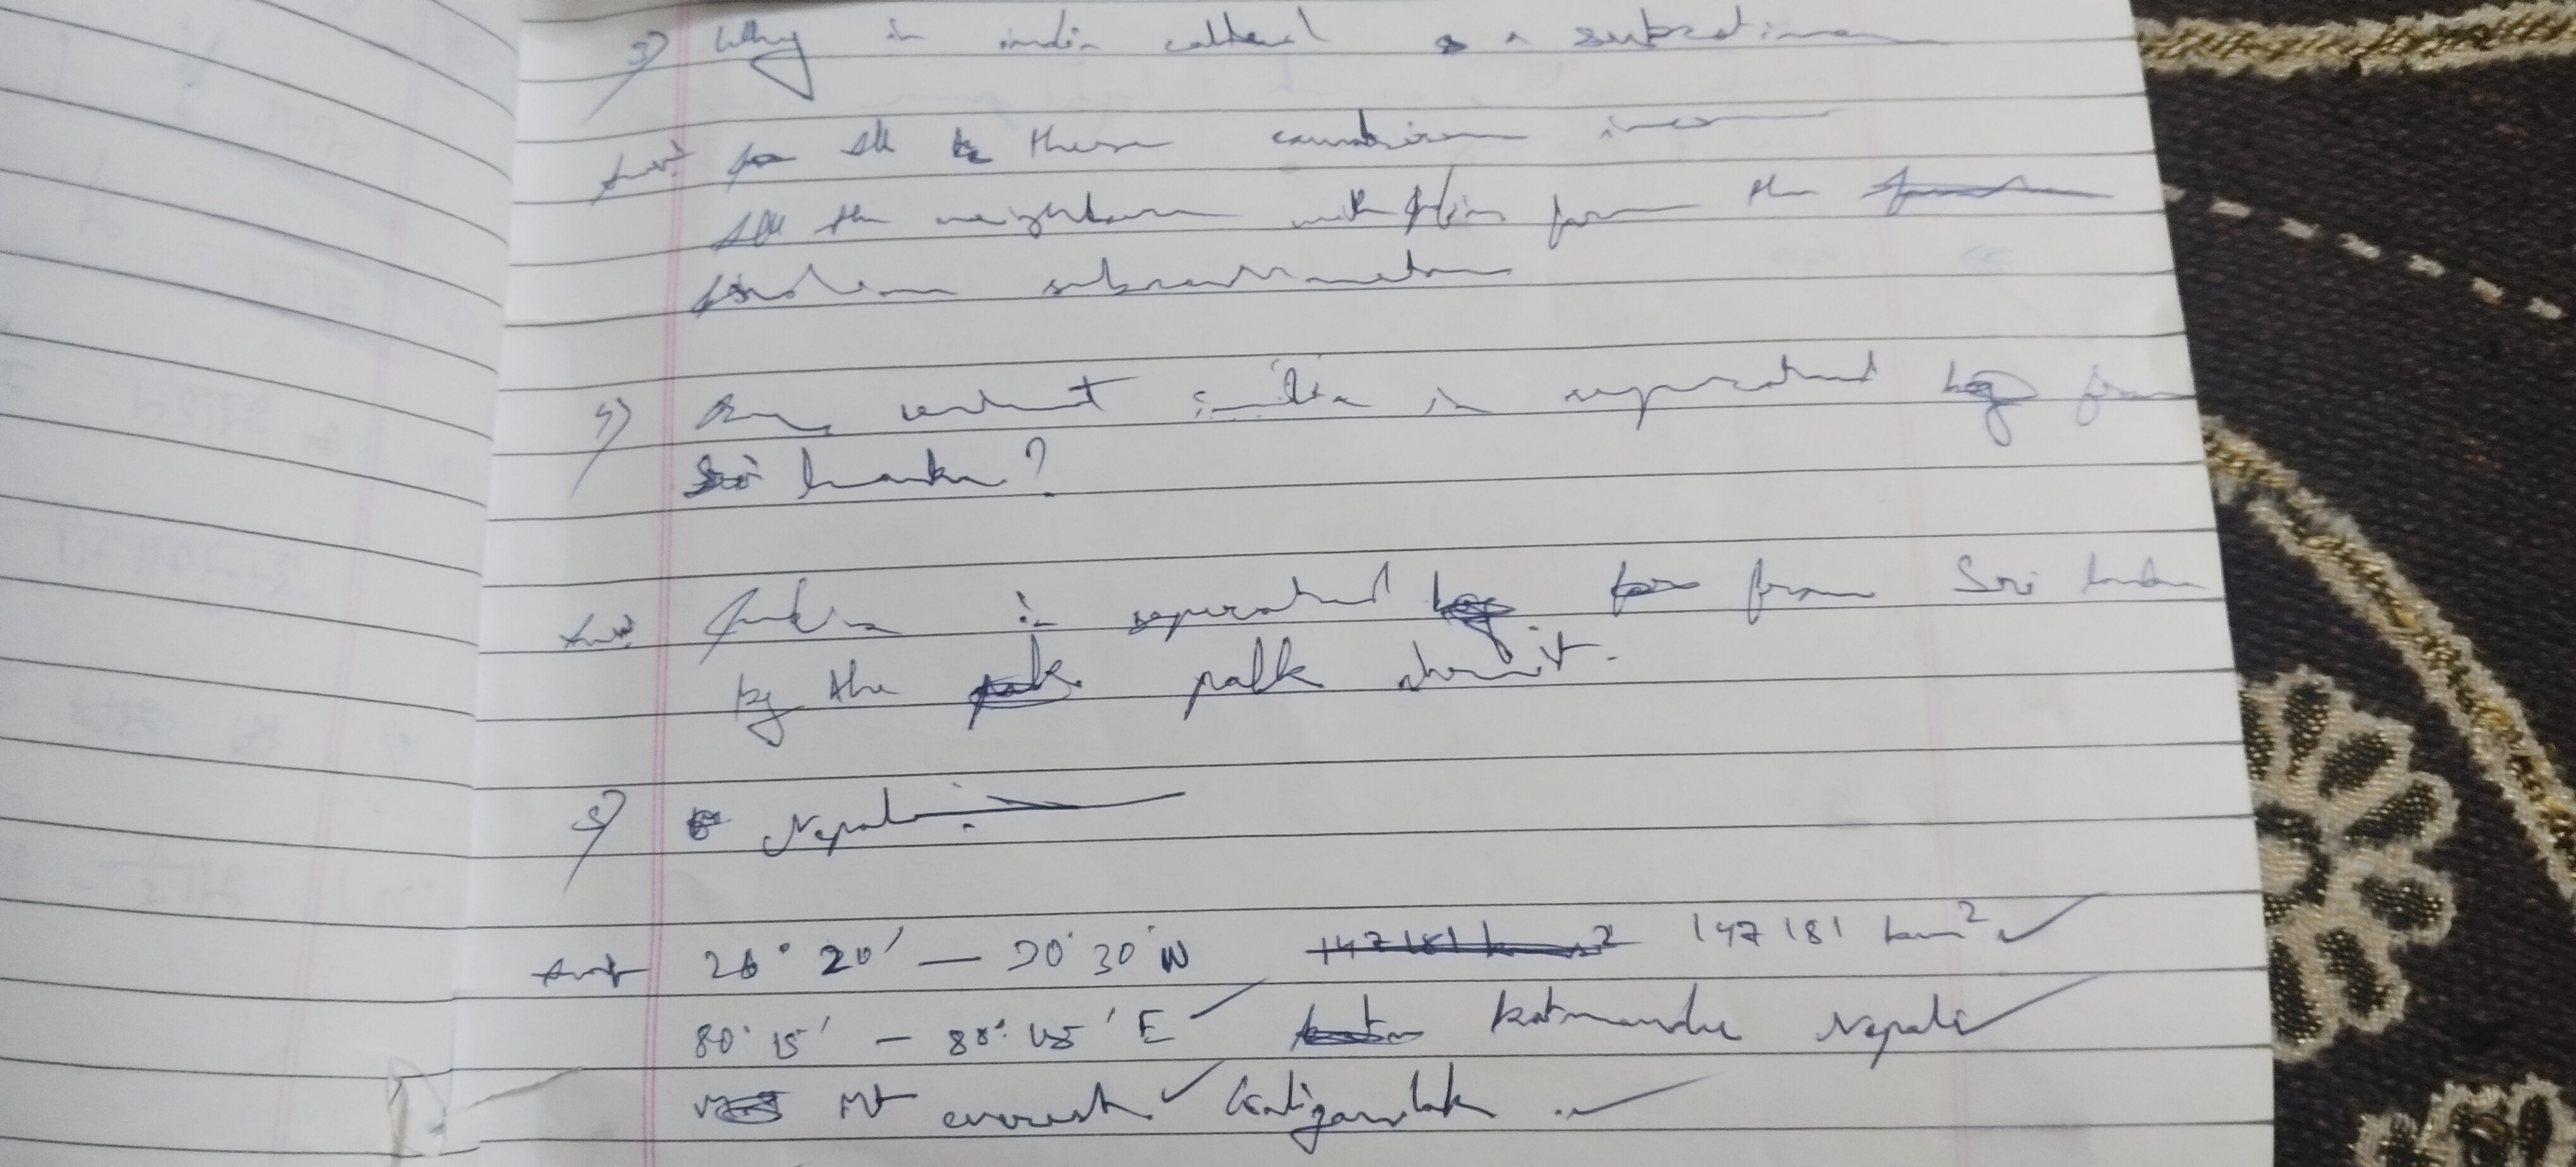 3) Why is india called a subcontinen
Ans: all these countries
All the neighbours with from the
subcontinent
4) By what india is seperated from
Sri Lanka?
Ans India is seperated from Sri Lanka
by the palk strait.
5) Nepal:
Ans 26° 20' — 30° 30' N 147 181 km²
80° 15' — 88° 15' E Katmandu Nepali
Mt everest Kaligandak